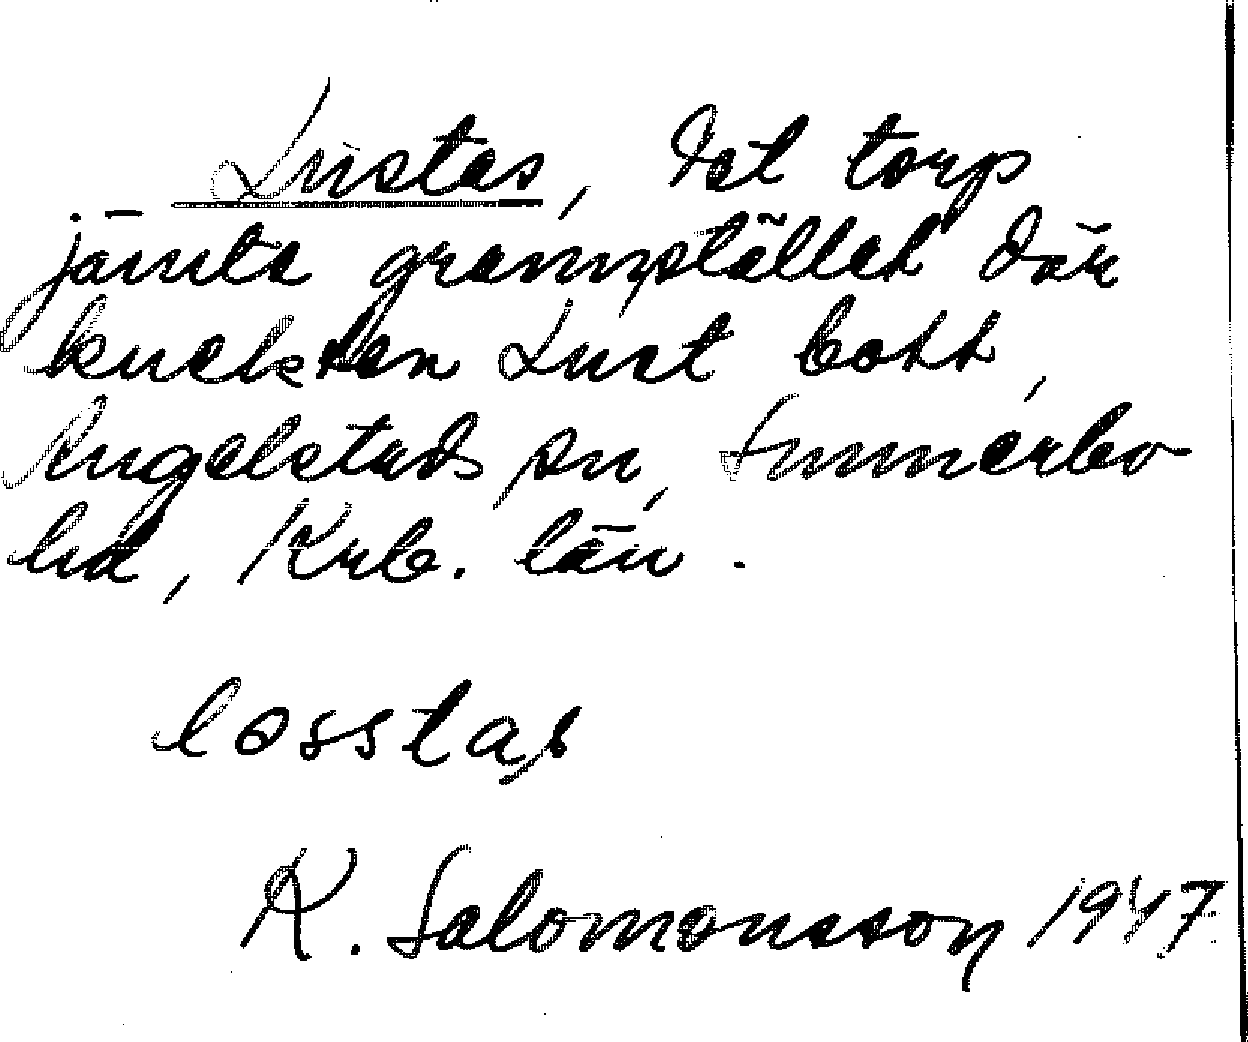 Lustas, det torp
jämte grannstället där
knekten Lust bott,
Angelstads sn, Sunnerbo
hd, Krb. län.
losstas
K. Salomonsson 1947